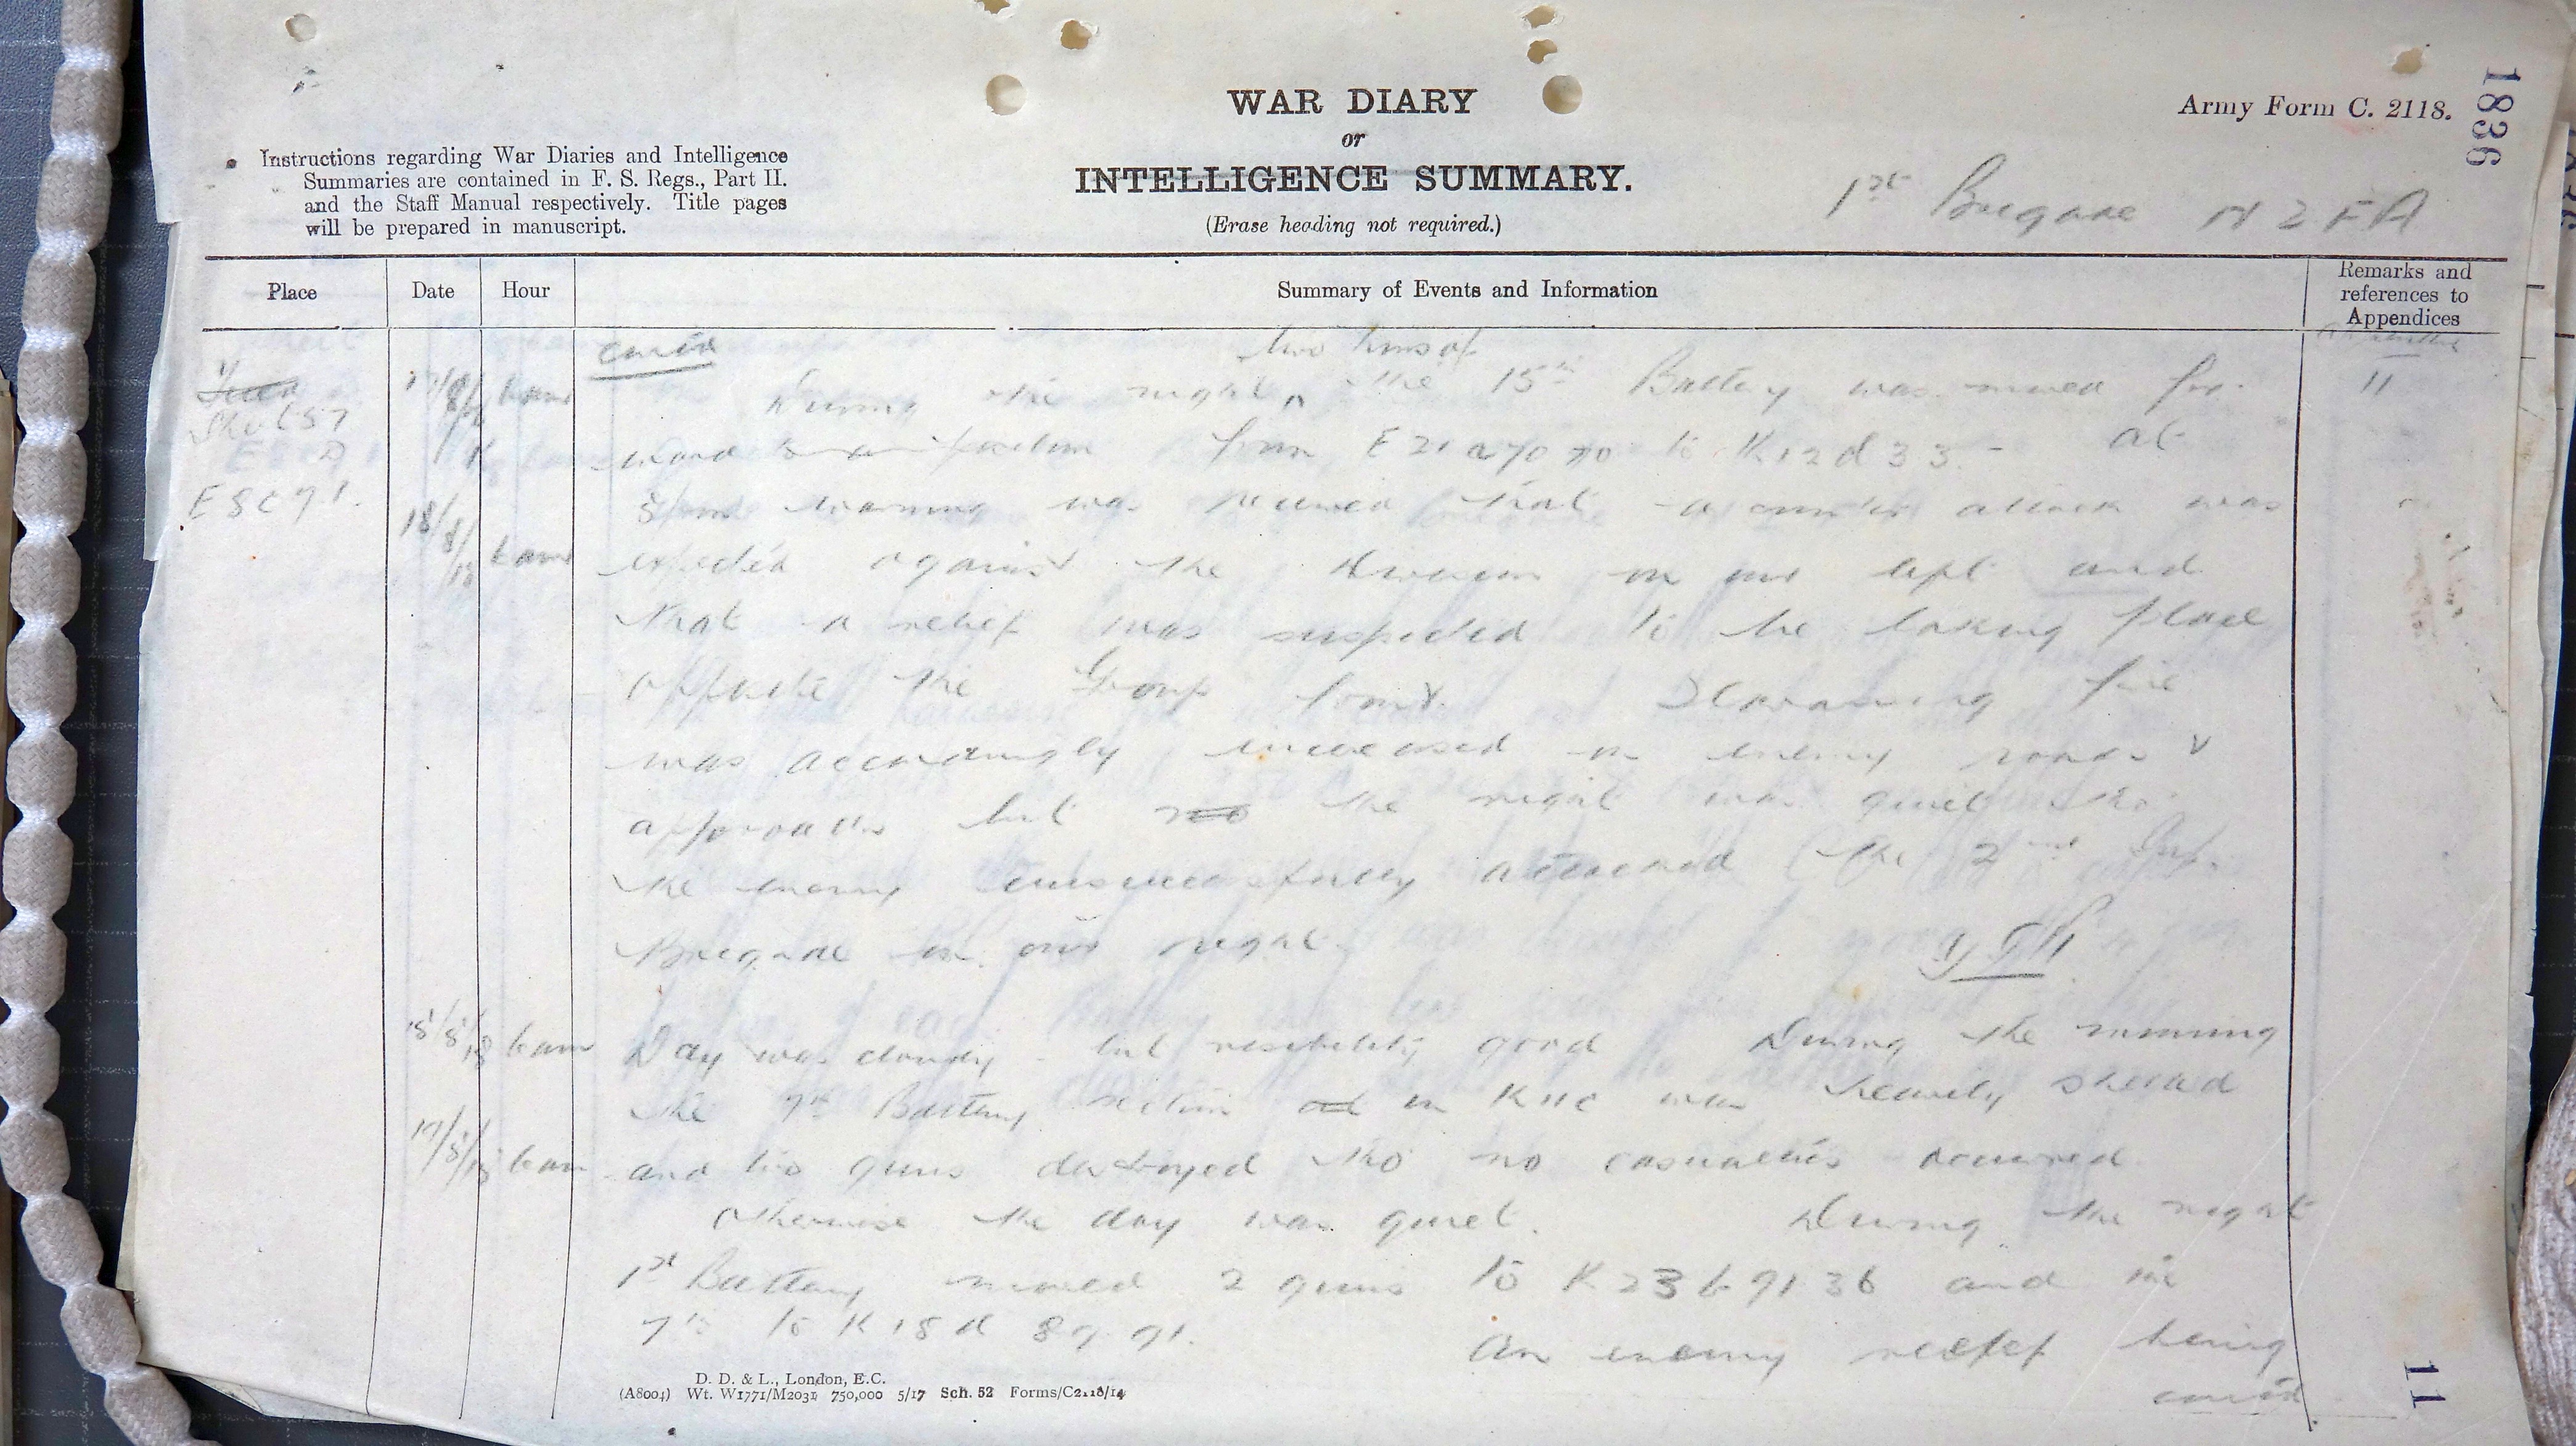 1836
WAR DIARY
or
INTELLIGENCE SUMMARY.
(Erase heading not required.)
Army Form C. 2118.
Instructions regarding War Diaries and Intelligence
Summaries are contained in F. S. Regs., Part II.
and the Staff Manual respectively. Title pages
will be prepared in manuscript.
1st Brigade NZFA
Place Date Hour Summary of Events and Information Remarks and
references to
Appendices
contd
two guns of
17/8/18 6 am During the night, the 15th Battery was moved for- 11
Sht 57
ward to a position from E 21 a 70 70 to K 12 d 33 - At
E 8 c 9.1.
8 pm warning was received that a counter attack was
18/8/18 6 am expected against the Division on our left and
that a relief was suspected to be taking place
opposite the Group front. Harassing fire
was accordingly increased on enemy roads &
approaches but no the night was quiet tho'
the enemy unsuccessfully attacked the 2nd Inf.
Brigade on our right.
18/8/18 6 am Day was cloudy - but visibility good During the morning
the 7th Battery section at in K 11 c was heavily shelled
19/8/18 6 am and two guns destroyed tho' no casualties occurred
Otherwise the day was quiet. During the night
1st Battery moved 2 guns to K 23 b 91 36 and the
7th to K 18 d 89. 91. An enemy relief being
contd
D. D. & L., London, E.C.
(A8004) Wt. W1771/M2031 750,000 5/17 Sch. 52 Forms/C2118/14
11